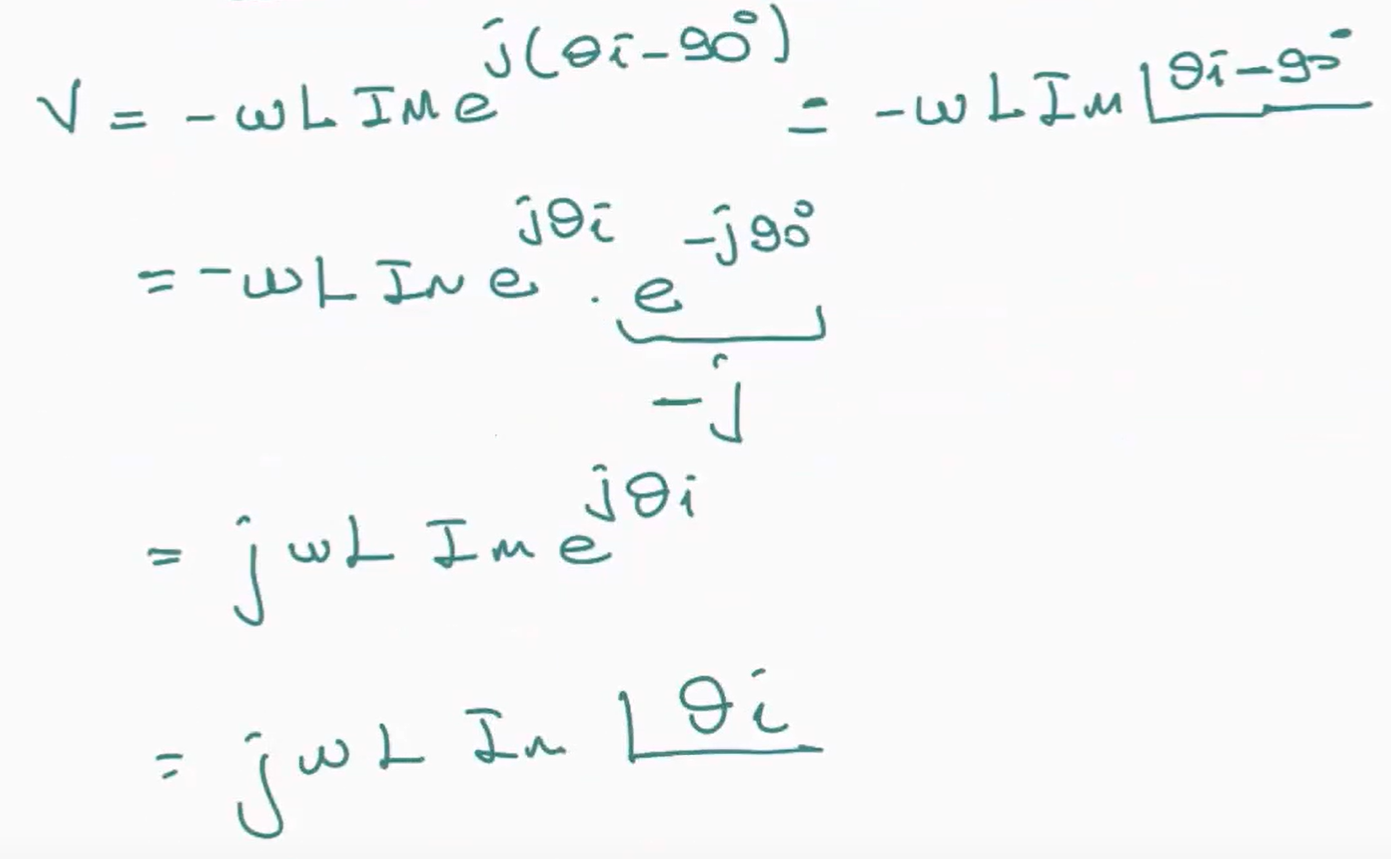 V = -ωL Im e^{j(θi-90°)} = -ωL Im ∠θi-90°
= -ωL Im e^{jθi} · e^{-j90°}
-j
= jωL Im e^{jθi}
= jωL Im ∠θi